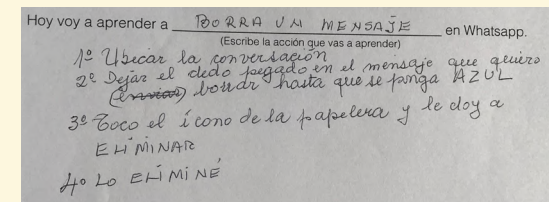 Hoy voy a aprender a BORRA UN MENSAJE en Whatsapp.
(Escribe la acción que vas a aprender)
1º Ubicar la conversación
2º Dejar el dedo pegado en el mensaje que quiero
(enviar) borrar hasta que se ponga AZUL
3º Toco el ícono de la papelera y le doy a
ELIMINAR
4º LO ELIMINÉ